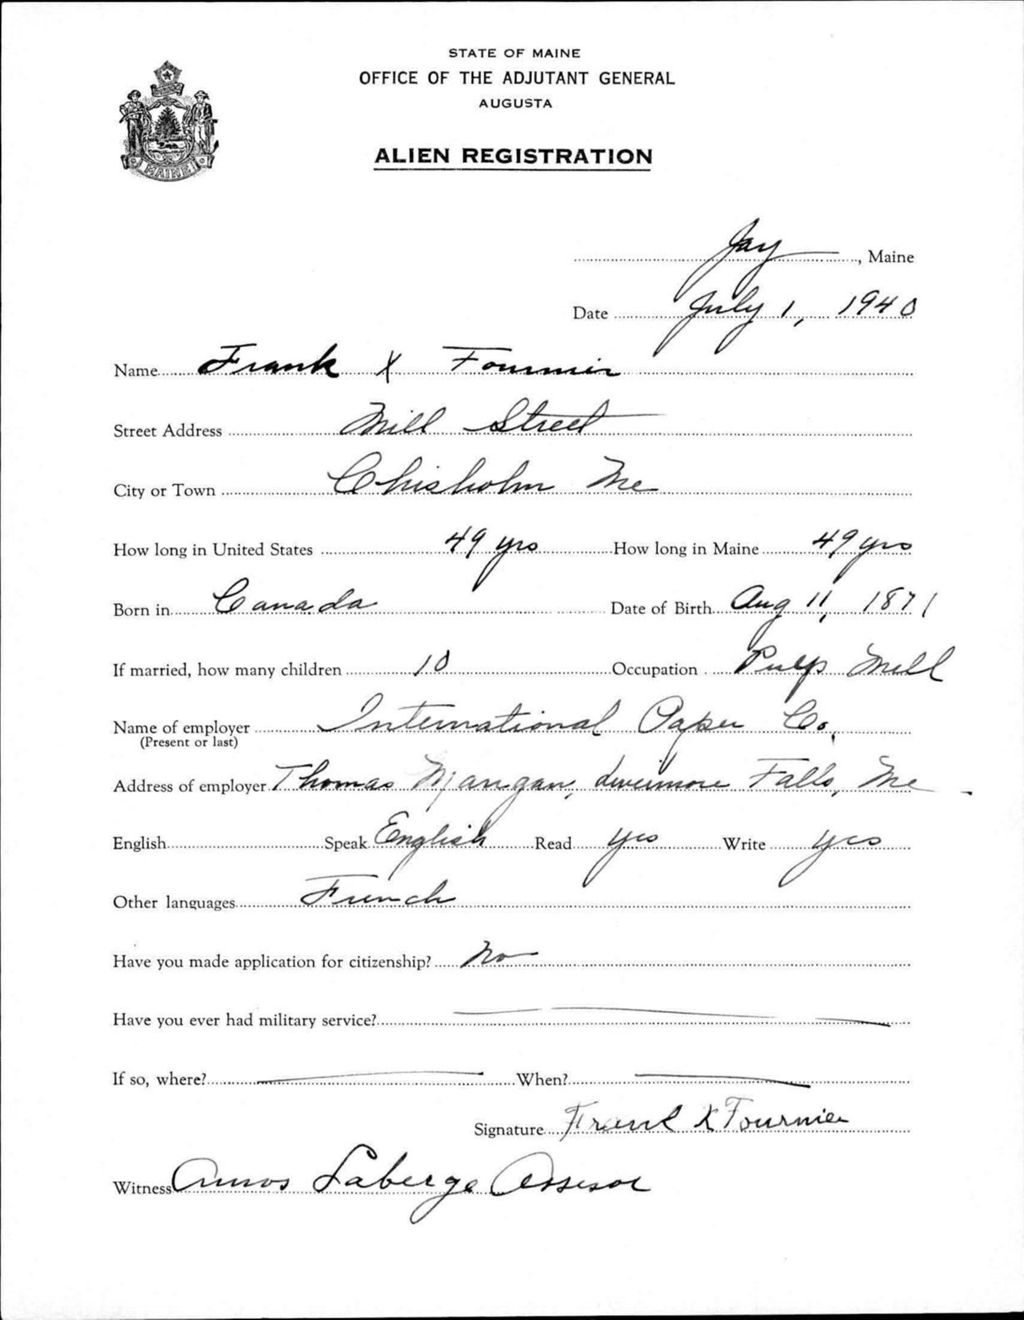 STATE OF MAINE
OFFICE OF THE ADJUTANT GENERAL
AUGUSTA
ALIEN REGISTRATION
MAINE
Jay, Maine
Date July 1, 1940
Name Frank X Fournier
Street Address Mill Street
City or Town Chisholm Me
How long in United States 49 yrs How long in Maine 49 yrs
Born in Canada Date of Birth Aug 11, 1871
If married, how many children 10 Occupation Pulp Mill
Name of employer International Paper Co.
(Present or last)
Address of employer Thomas Mangan, Livermore Falls, Me
English Speak English Read yes Write yes
Other languages French
Have you made application for citizenship? No
Have you ever had military service?
If so, where? When?
Signature Frank X Fournier
Witness Amos Laberge Assesor